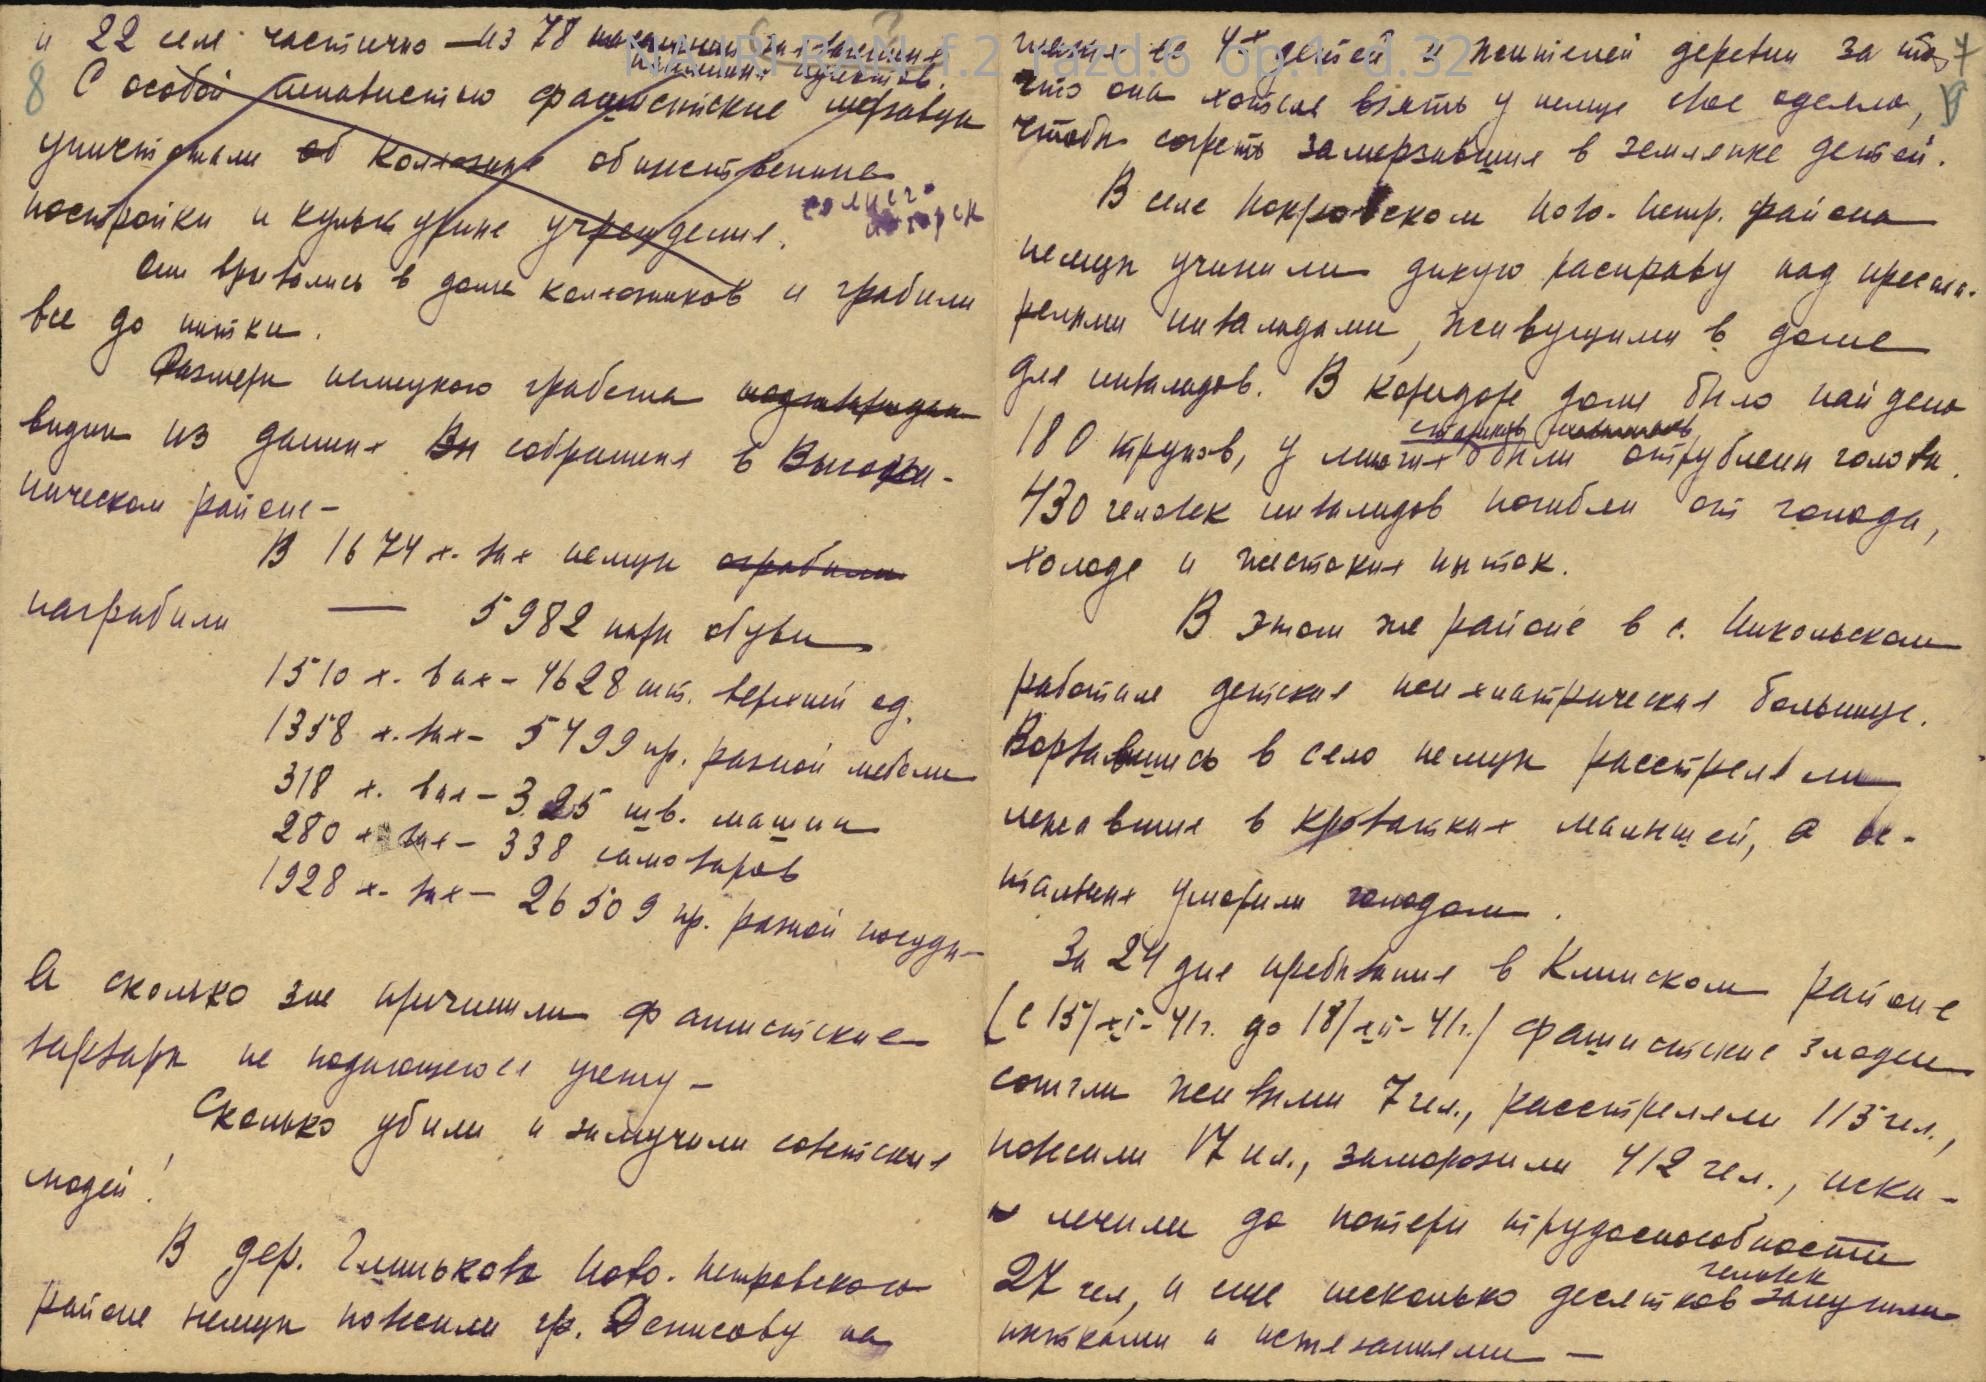 и 22 села частично — из 78
населенных пунктов.
8 С особой ненавистью фашистские мерзавцы
уничтожали об колхозные общественные
постройки и культурные учреждения.
Они врывались в дома колхозников и грабили
все до нитки.
Размеры немецкого грабежа подтвержден
видны из данных Вы собранных в Высоки-
ническом районе —
В 1674 х-вах немцы ограбили
награбили — 5982 пары обуви
1510 х-вах — 4628 шт. верхней од.
1358 х-вах — 5499 пр. разной мебели
318 х-вах — 325 шв. машин
280 х-вах — 338 самоваров
1928 х-вах — 26509 пр. разной посуды —
А сколько зла причинили фашистские
варвары не подающегося учету —
Сколько убили и замучили советских
людей!
В дер. Глиньково Ново-Петровского
района немцы повесили гр. Денисову на
NAIRI RAN f.2 razd.6 op.1 d.32
глазах ее 4х детей и жителей деревни за то, 7
что она хотела взять у немца свое одеяло,
чтобы согреть замерзавших в землянке детей.
В селе Покровском Ново-Петр. района
немцы учинили дикую расправу над преста-
релыми инвалидами, живущими в доме
для инвалидов. В коридоре дома было найдено
180 трупов, у многих стариков были отрублены головы.
430 человек инвалидов погибли от голода,
холода и жестоких пыток.
В этом же районе в с. Никольском
работала детская психиатрическая больница.
Ворвавшись в село немцы расстреляли
лежавших в кроватках малышей, а ос-
тальных уморили голодом.
За 24 дня пребывания в Клинском районе
(с 15/XI-41г. до 18/XII-41г.) фашистские злодеи
сожгли живыми 7 чел., расстреляли 115 чел.,
повесили 17 чел., заморозили 412 чел., иска-
лечили до потери трудоспособности
27 чел, и еще несколько десятков человек замучили
пытками и истязаниями —